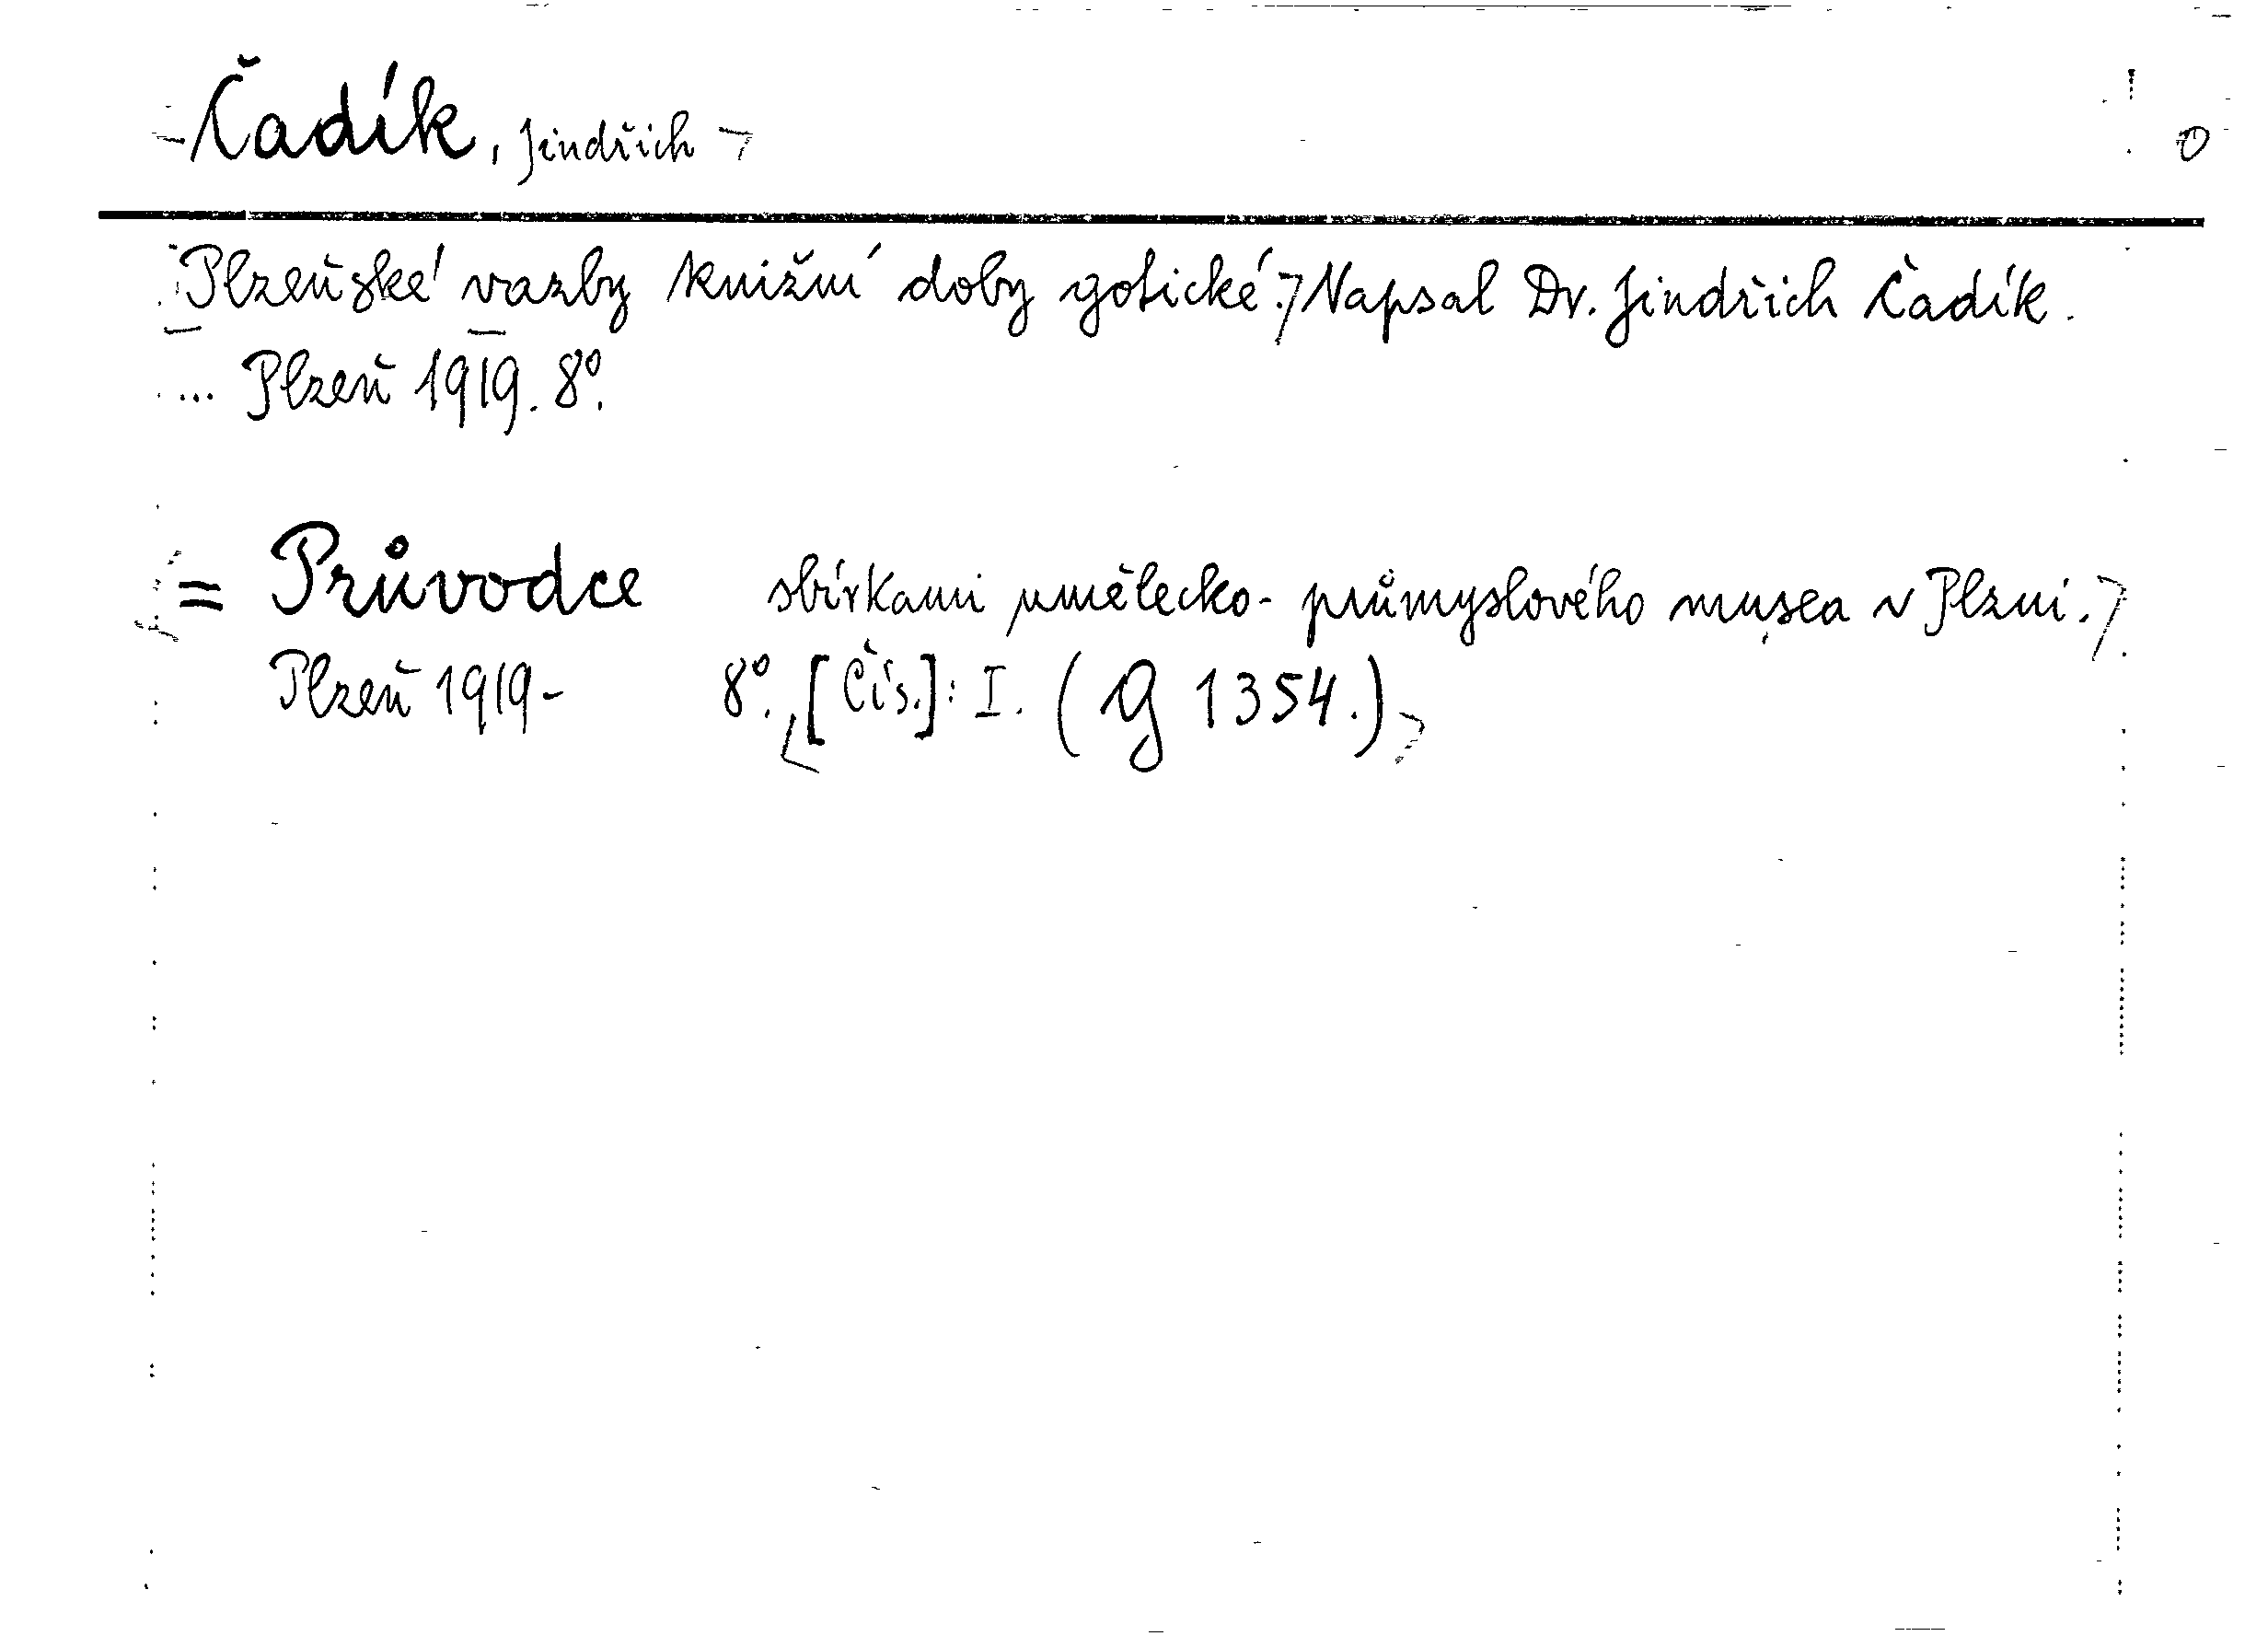 Čadík, Jindřich
Plzeňské vazby knižní doby gotické. Napsal Dr. Jindřich Čadík.
... Plzeň 1919. 8°.
= Průvodce sbírkami umělecko-průmyslového musea v Plzni.
Plzeň 1919- 8°. [Čís.]: I. (G 1354.)